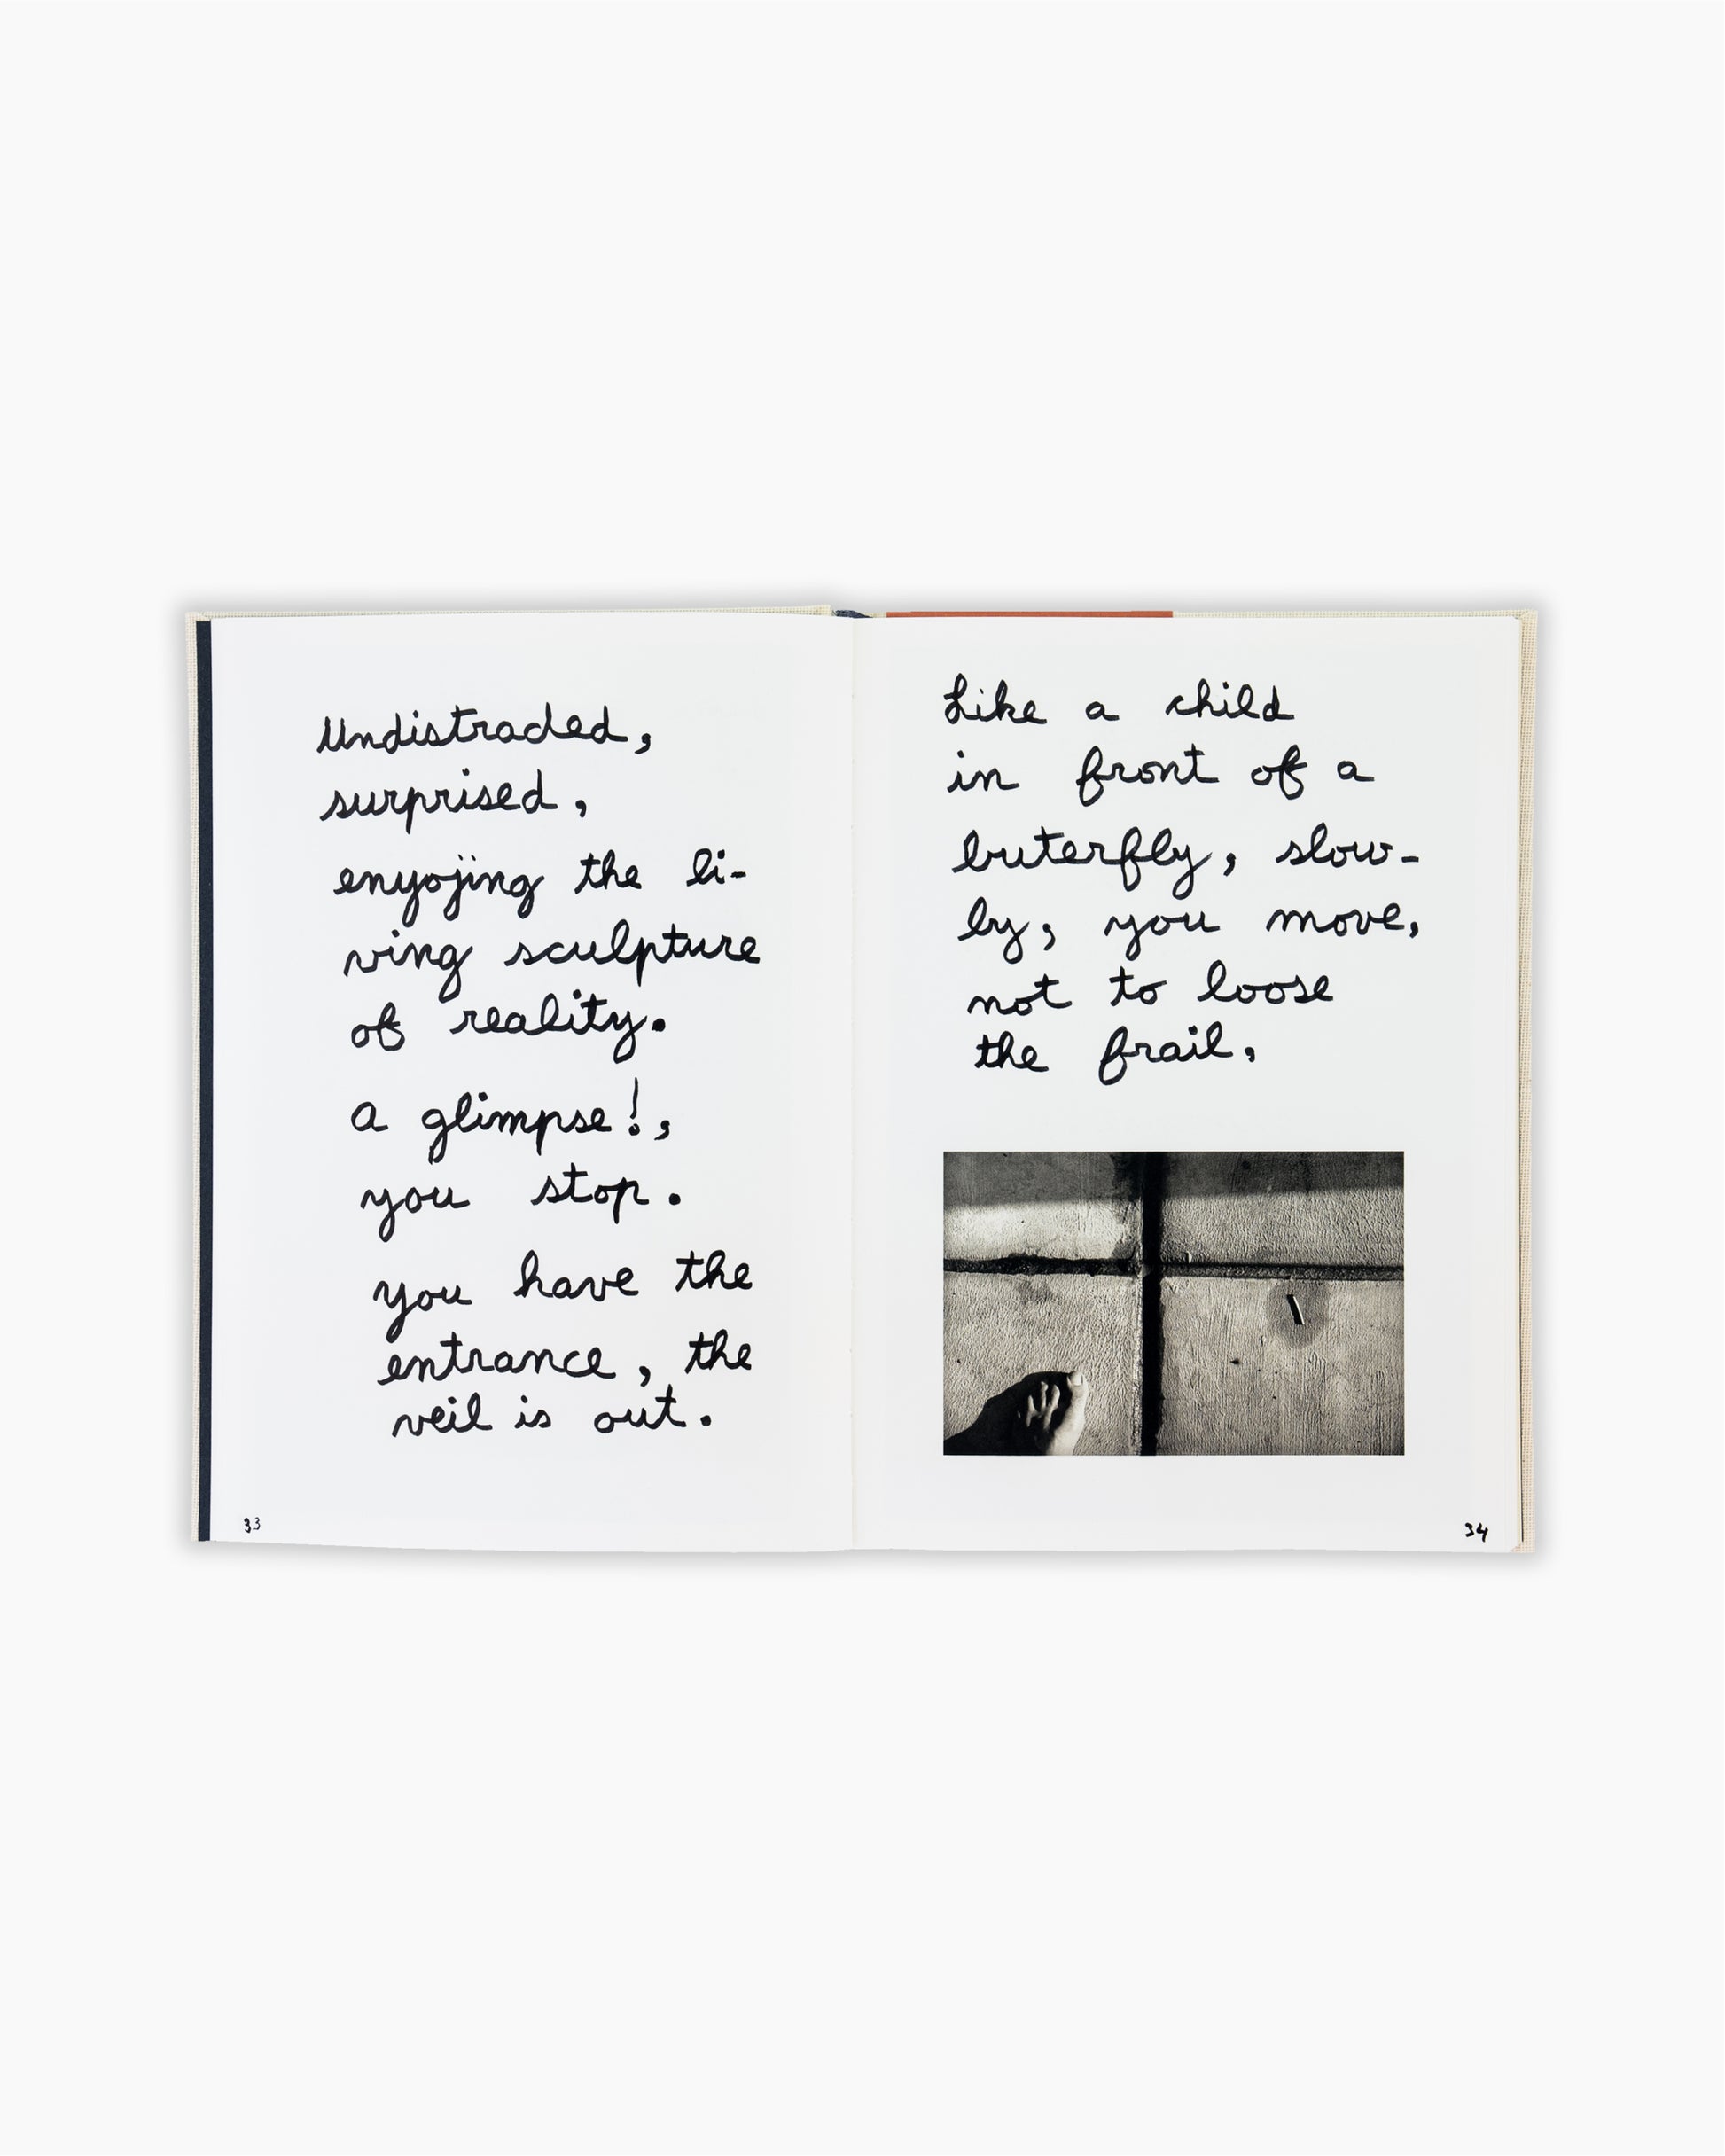 Undistracted,
surprised,
enyojing the li-
ving sculpture
of reality.
a glimpse!,
you stop.
you have the
entrance, the
veil is out.
33
Like a child
in front of a
buterfly, slow-
ly, you move,
not to loose
the frail,
34